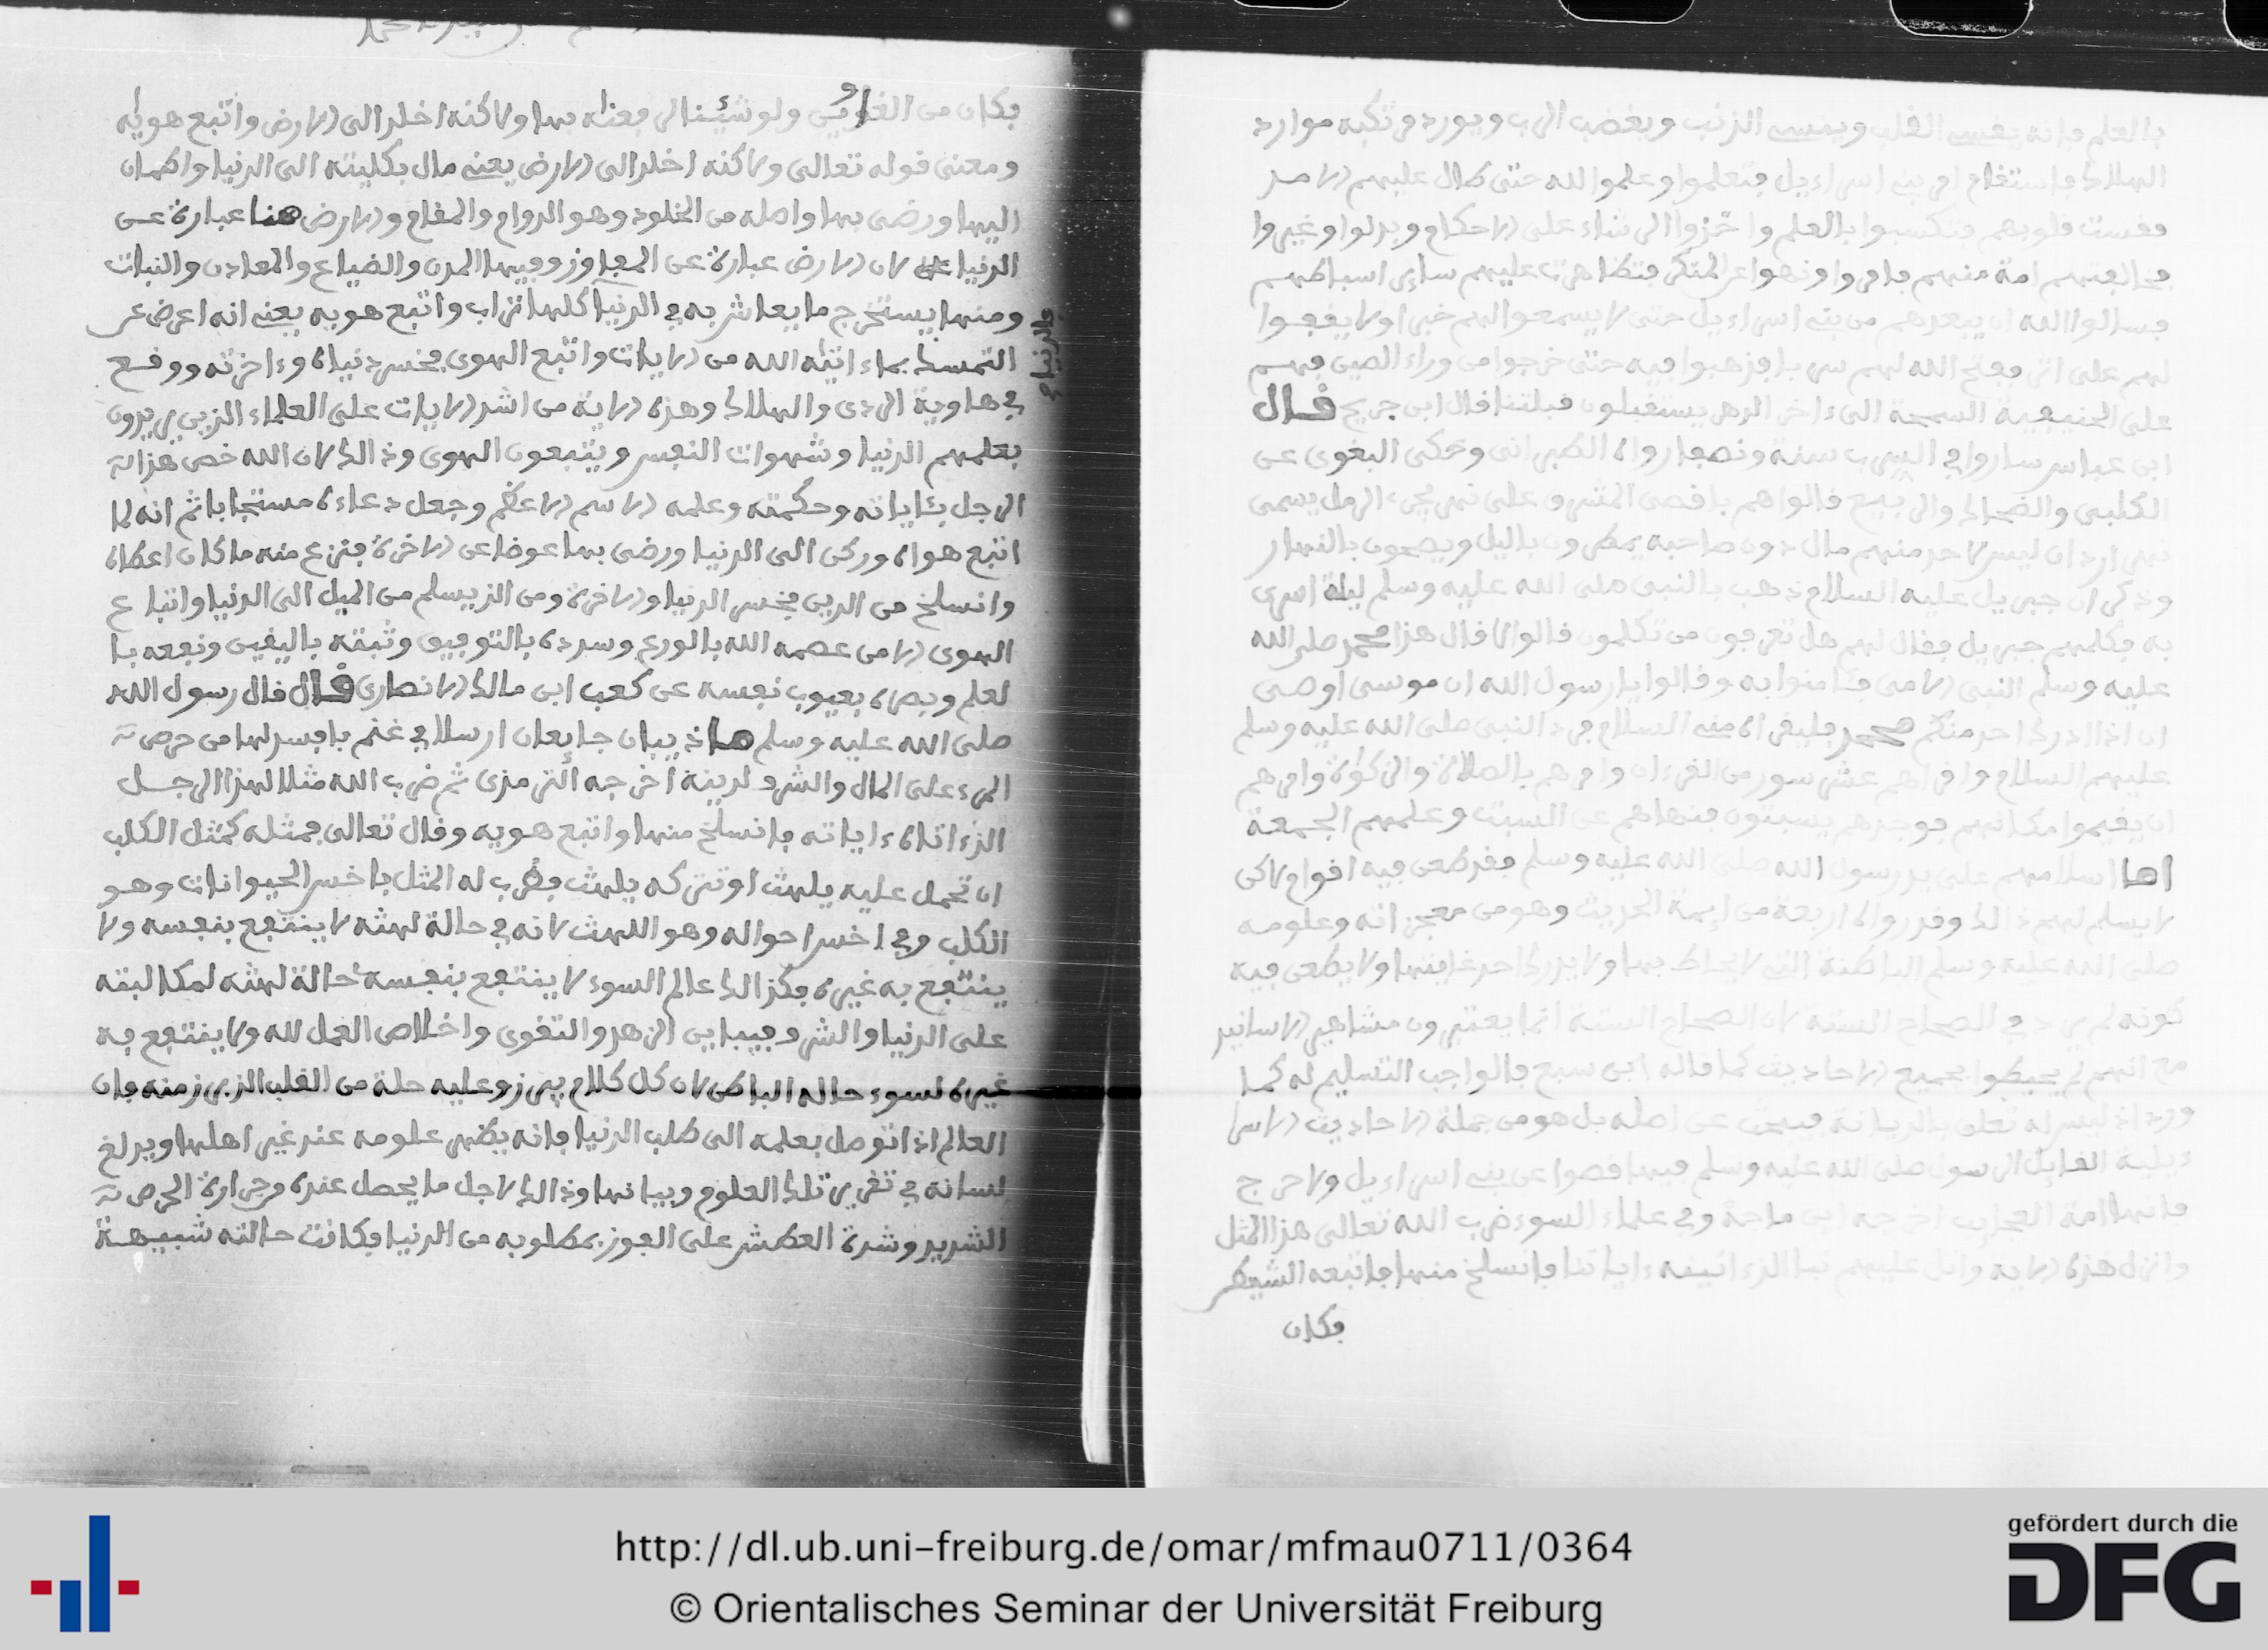 بالعلم فإنه يقسي القلب وينسي الذنب ويغضب الرب ويورد مرتكبه موارد
الهلاك فاستقام امر بني اسراءيل فتعلموا وعلموا لله حتى طال عليهم الامد
فقست قلوبهم فتكسبوا بالعلم واخذوا الرشاء على الاحكام وبدلوا وغيروا
فخالفتهم امة منهم فامروا ونهوا عن المنكر فتظاهرت عليهم ساير اسباطهم
فسالوا الله ان يبعدهم من بني اسراءيل حتى لا يسمعوا لهم خبرا ولا يقفوا
لهم على اثر ففتح الله لهم سربا فذهبوا فيه حتى خرجوا من وراء الصين فهم
على الحنيفية السمحة الى ءاخر الدهر يستقبلون قبلتنا قال ابن جريج قال
ابن عباس ساروا في السرب سنة ونصفا رواه الطبراني وحكى البغوي عن
الكلبي والضحاك والربيع قالوا هم باقصى المشرق على نهر يجري الرمل يسمى
نهر اردان ليس لاحد منهم مال دون صاحبه يمطرون باليل ويصحون بالنهار
وذكر ان جبريل عليه السلام ذهب بالنبي صلى الله عليه وسلم ليلة اسري
به فكلمهم جبريل فقال لهم هل تعرفون من تكلمون قالوا لا قال هذا محمد صلى الله
عليه وسلم النبي الامي فئامنوا به وقالوا يا رسول الله ان موسى اوصى
ان اذا ادرك احد منكم محمد فليقراه منه السلام فرد النبي صلى الله عليه وسلم
عليهم السلام واقراهم عشر سور من القرءان وامرهم بالصلاة والزكوة وامرهم
ان يقيموا مكانهم فوجدهم يسبتون فنهاهم عن السبت وعلمهم الجمعة
اما اسلامهم على يد رسول الله صلى الله عليه وسلم فقد طعن فيه اقوام لاكن
لا يسلم لهم ذالك وقد رواه اربعة من ايمة الحديث وهو من معجزاته وعلومه
صلى الله عليه وسلم الباطنة التي لا يحاط بها ولا يدرك احد غايتها ولا يطعن فيه
كونه لم يرد في الصحاح الستة لان الصحاح الستة انما يعتبرون مشاهير الاسانيد
مع انهم لم يحيطوا بجميع الاحاديث كما قاله ابن سبع فالواجب التسليم له كما
ورد اذ ليس له تعلق بالديانة فيبحث عن اصله بل هو من جملة الاحاديث الاسرا
ءيلية القايل الرسول صلى الله عليه وسلم فيها قصوا عن بني اسراءيل ولا حرج
فانها امة العجايب اخرجه ابن ماجة وفي علماء السوء ضرب الله تعالى هذا المثل
وانزل هذه الاية واتل عليهم نبا الذي ءاتينه ءاياتنا فانسلخ منها فاتبعه الشيطن
فكان
فكان من الغاوين ولو شئنا لرفعنه بها ولاكنه اخلد الى الارض واتبع هويه
ومعنى قوله تعالى ولاكنه اخلد الى الارض يعني مال بكليته الى الدنيا واطمان
اليها ورضي بها واصله من الخلود وهو الدوام والمقام والارض هنا عبارة عن
الدنيا لان الارض عبارة عن المفاوز وفيها المدن والضياع والمعادن والنبات
ومنها يستخرج ما يعاشر به في الدنيا كلها تراب واتبع هويه يعني انه اعرض عن
فالدنيا ع
التمسك بما ءاتيه الله من الايات واتبع الهوى فخسر دنياه وءاخرته ووقع
في هاوية الردى والهلاك وهذه الاية من اشد الايات على العلماء الذين يريدون
بعلمهم الدنيا وشهوات النفس ويتبعون الهوى وذالك لان الله خص هذا
الرجل بئاياته وحكمته وعلمه الاسم الاعظم وجعل دعاءه مستجابا ثم انه لما
اتبع هواه وركن الى الدنيا ورضي بها عوضا عن الاخرة فنزع منه ما كان اعطاه
وانسلخ من الدين فخسر الدنيا والاخرة ومن الذي يسلم من الميل الى الدنيا واتباع
الهوى الا من عصمه الله بالورع وسدده بالتوفيق وثبته باليقين ونفعه با
لعلم وبصره بعيوب نفسه عن كعب ابن مالك الانصاري قال قال رسول الله
صلى الله عليه وسلم ما ذيبان جايعان ارسلا في غنم بافسد لها من حرص
المرء على المال والشرف لدينه اخرجه الترمذي ثم ضرب الله مثلا لهذا الرجل
الذي ءاتاه ءاياته فانسلخ منها واتبع هويه وقال تعالى فمثله كمثل الكلب
ان تحمل عليه يلهث او تتركه يلهث فضرب له المثل باخس الحيوانات وهو
الكلب وفي اخس احواله وهو اللهث لانه في حالة لهثه لا ينتفع بنفسه ولا
ينتفع به غيره فكذالك عالم السوء لا ينتفع بنفسه حالة لهثه لمكالبته
على الدنيا والشرف فيباين الزهد والتقوى واخلاص العمل لله ولا ينتفع به
غيره لسوء حاله الباطن لان كل كلام يبرز وعليه حلة من القلب الذي برز منه فان
العالم اذا توصل بعلمه الى طلب الدنيا فانه يظهر علومه عند غير اهلها ويدلغ
لسانه في تقرير تلك العلوم وبيانها وذالك لاجل ما يحصل عنده وحرارة الحرص
الشديد وشدة العطش على الفوز بمطلوبه من الدنيا فكانت حالته شبيهة
http://dl.ub.uni-freiburg.de/omar/mfmau0711/0364
© Orientalisches Seminar der Universität Freiburg
gefördert durch die
DFG